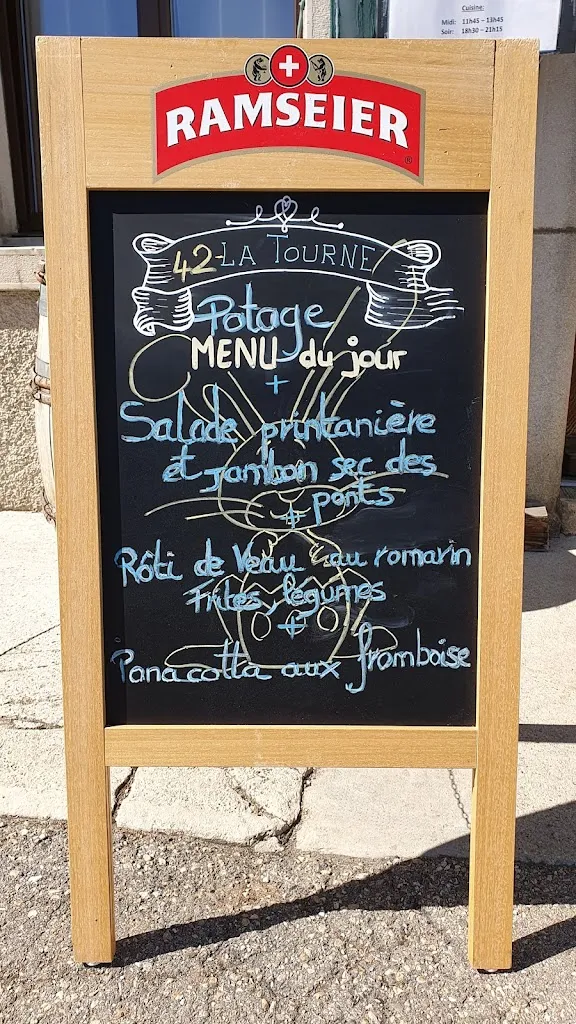 Cuisine:
Midi: 11h45 - 13h45
Soir: 18h30 - 21h15
RAMSEIER
®
42-LA TOURNE
Potage
MENU du jour
+
Salade printanière
et jambon sec des
ponts
+
Rôti de Veau au romarin
Frites, légumes
+
Panacotta aux framboise